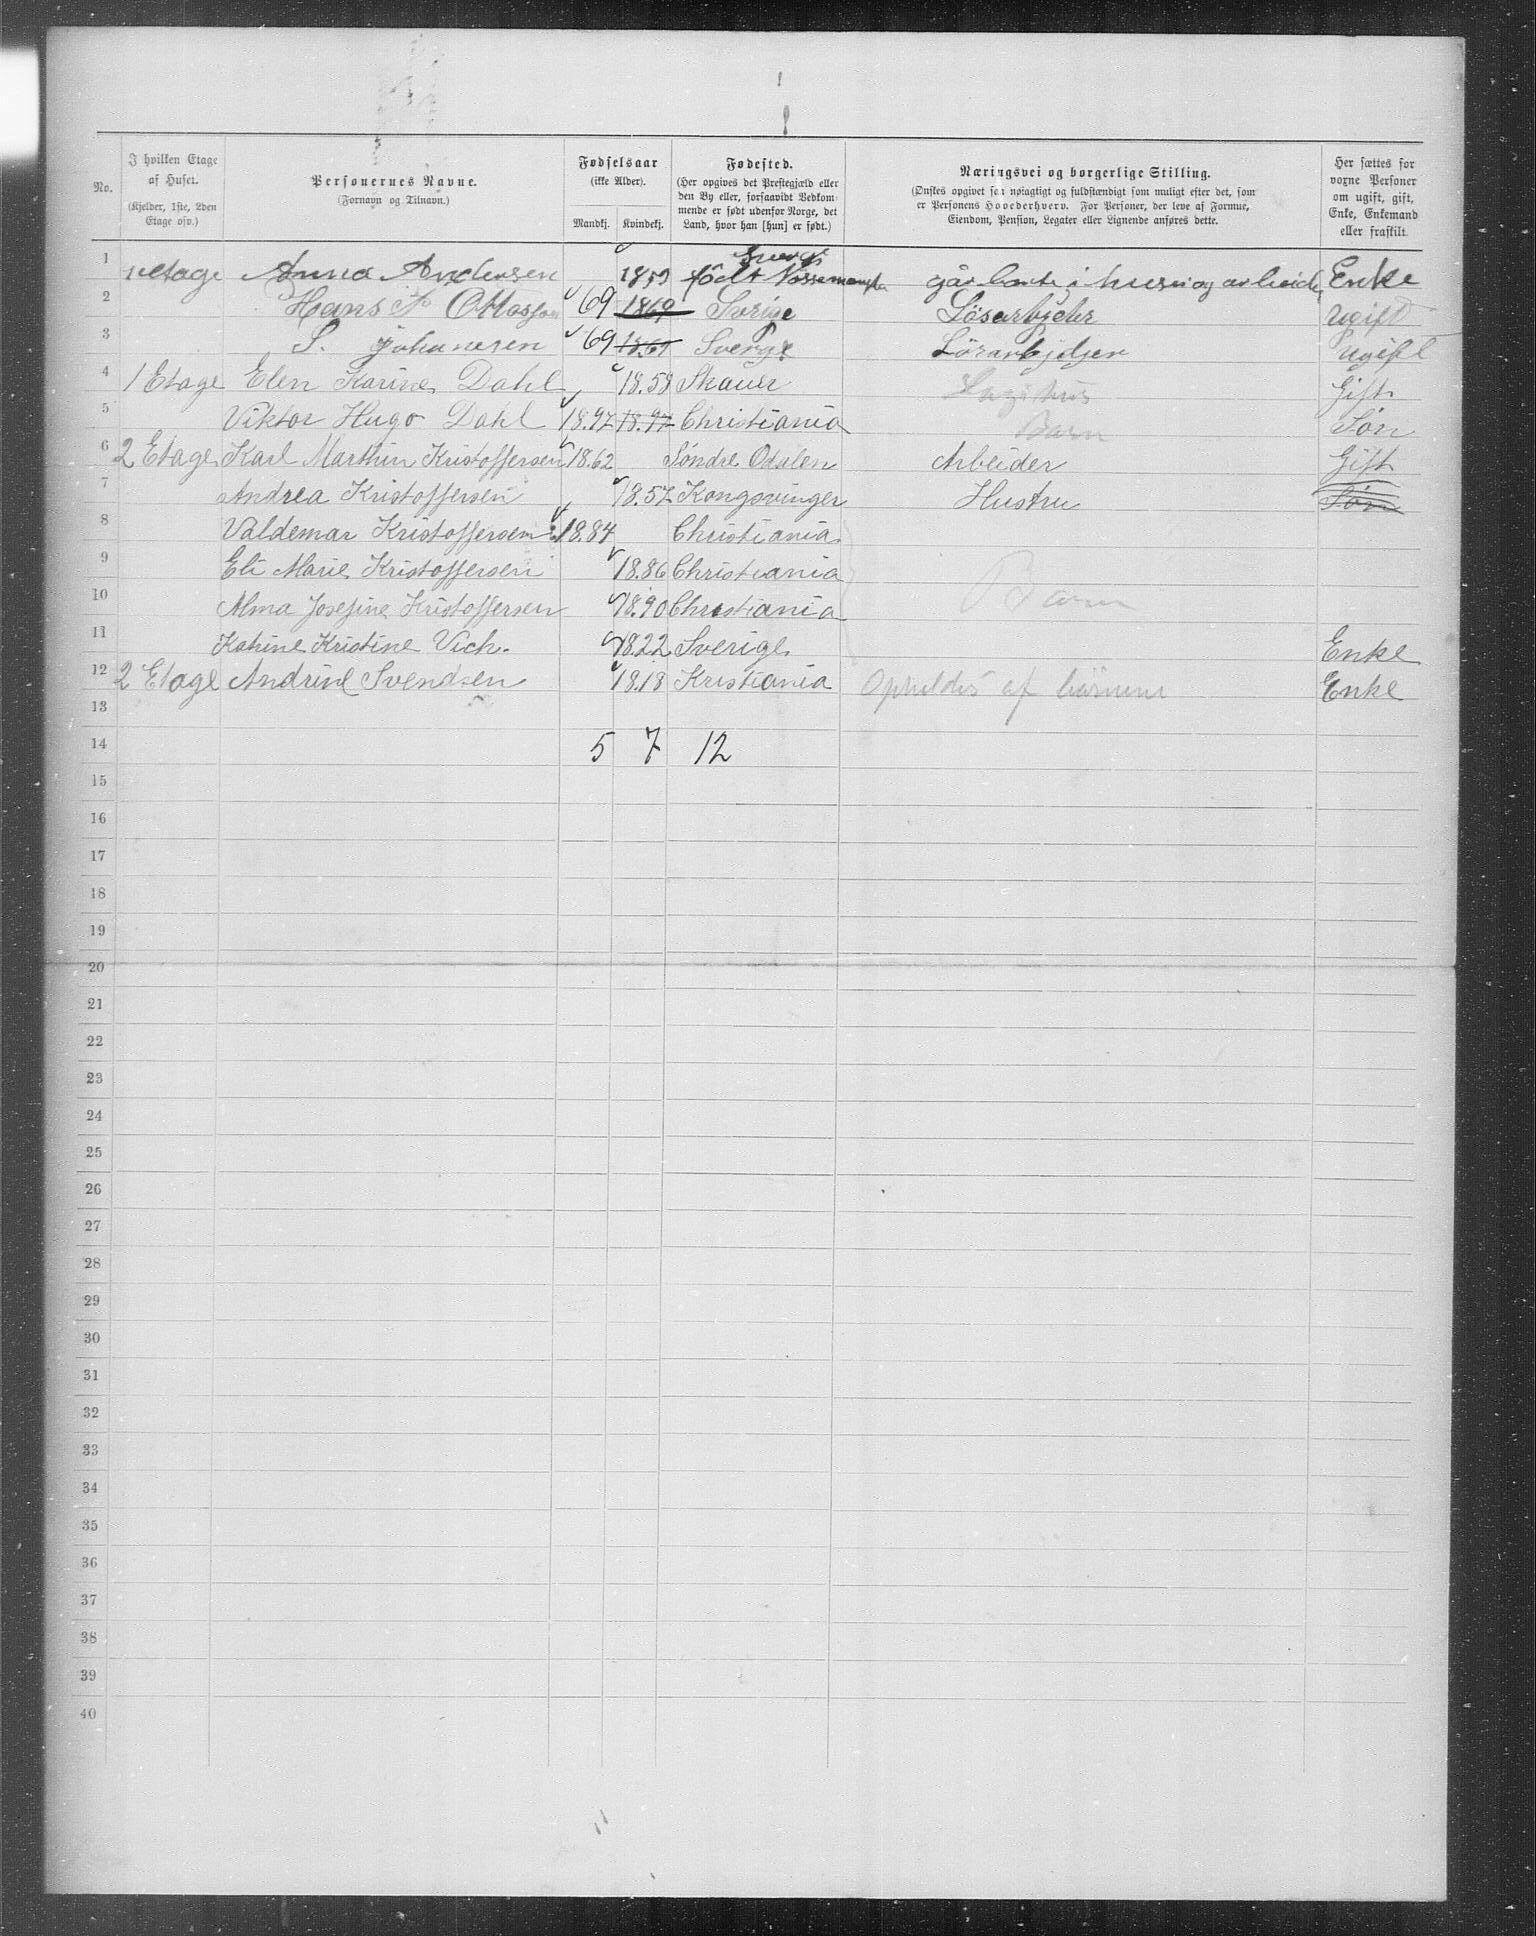 No.
I hvilken Etage af Huset. (Kjelder, 1ste, 2den Etage osv.)
Personernes Navne. (Fornavn og Tilnavn.)
Fødselsaar (ikke Alder).
Mandkj. Kvindekj.
Fødested. (Her opgives det Prestegjæld eller den By eller, forsaavidt Vedkommende er født udenfor Norge, det Land, hvor han [hun] er født.)
Næringsvei og borgerlige Stilling. (Ønskes opgivet saa nøiagtigt og fuldstændigt som muligt efter det, som er Personens Hovederhverv. For Personer, der leve af Formue, Eiendom, Pension, Legater eller Lignende anføres dette.)
Her sættes for voxne Personer om ugift, gift, Enke, Enkemand eller fraskilt.
1 1 etage Anna Andersen 1853 född Sverge Enke
2 Hans P Ottosson 69 1869 Sverige Lösarbjder ugift
3 S. johanesen 69 1869 Sverge Lösarbjdjer ugift
4 1 Etage Elen Karine Dahl 18.58 Skauer Gift
5 Viktor Hugo Dahl 18.97 18.97 Christiania Barn Søn
6 2 Etage Karl Marthin Kristoffersen 18.62 Søndre Odalen Arbeider Gift
7 Andrea Kristoffersen 18.57 Kongsvinger Hustru Søn
8 Valdemar Kristoffersen 18.84 Christiania
9 Eli Marie Kristoffersen 18.86 Christiania
10 Alma Josefine Kristoffersen 18.90 Christiania Barn
11 Katrine Kristine Vick. 18.22 Sverige Enke
12 2 Etage Andrine Svendsen 18.18 Kristiania Opholdes af børnene Enke
13
14 5 7 12
15
16
17
18
19
20
21
22
23
24
25
26
27
28
29
30
31
32
33
34
35
36
37
38
39
40